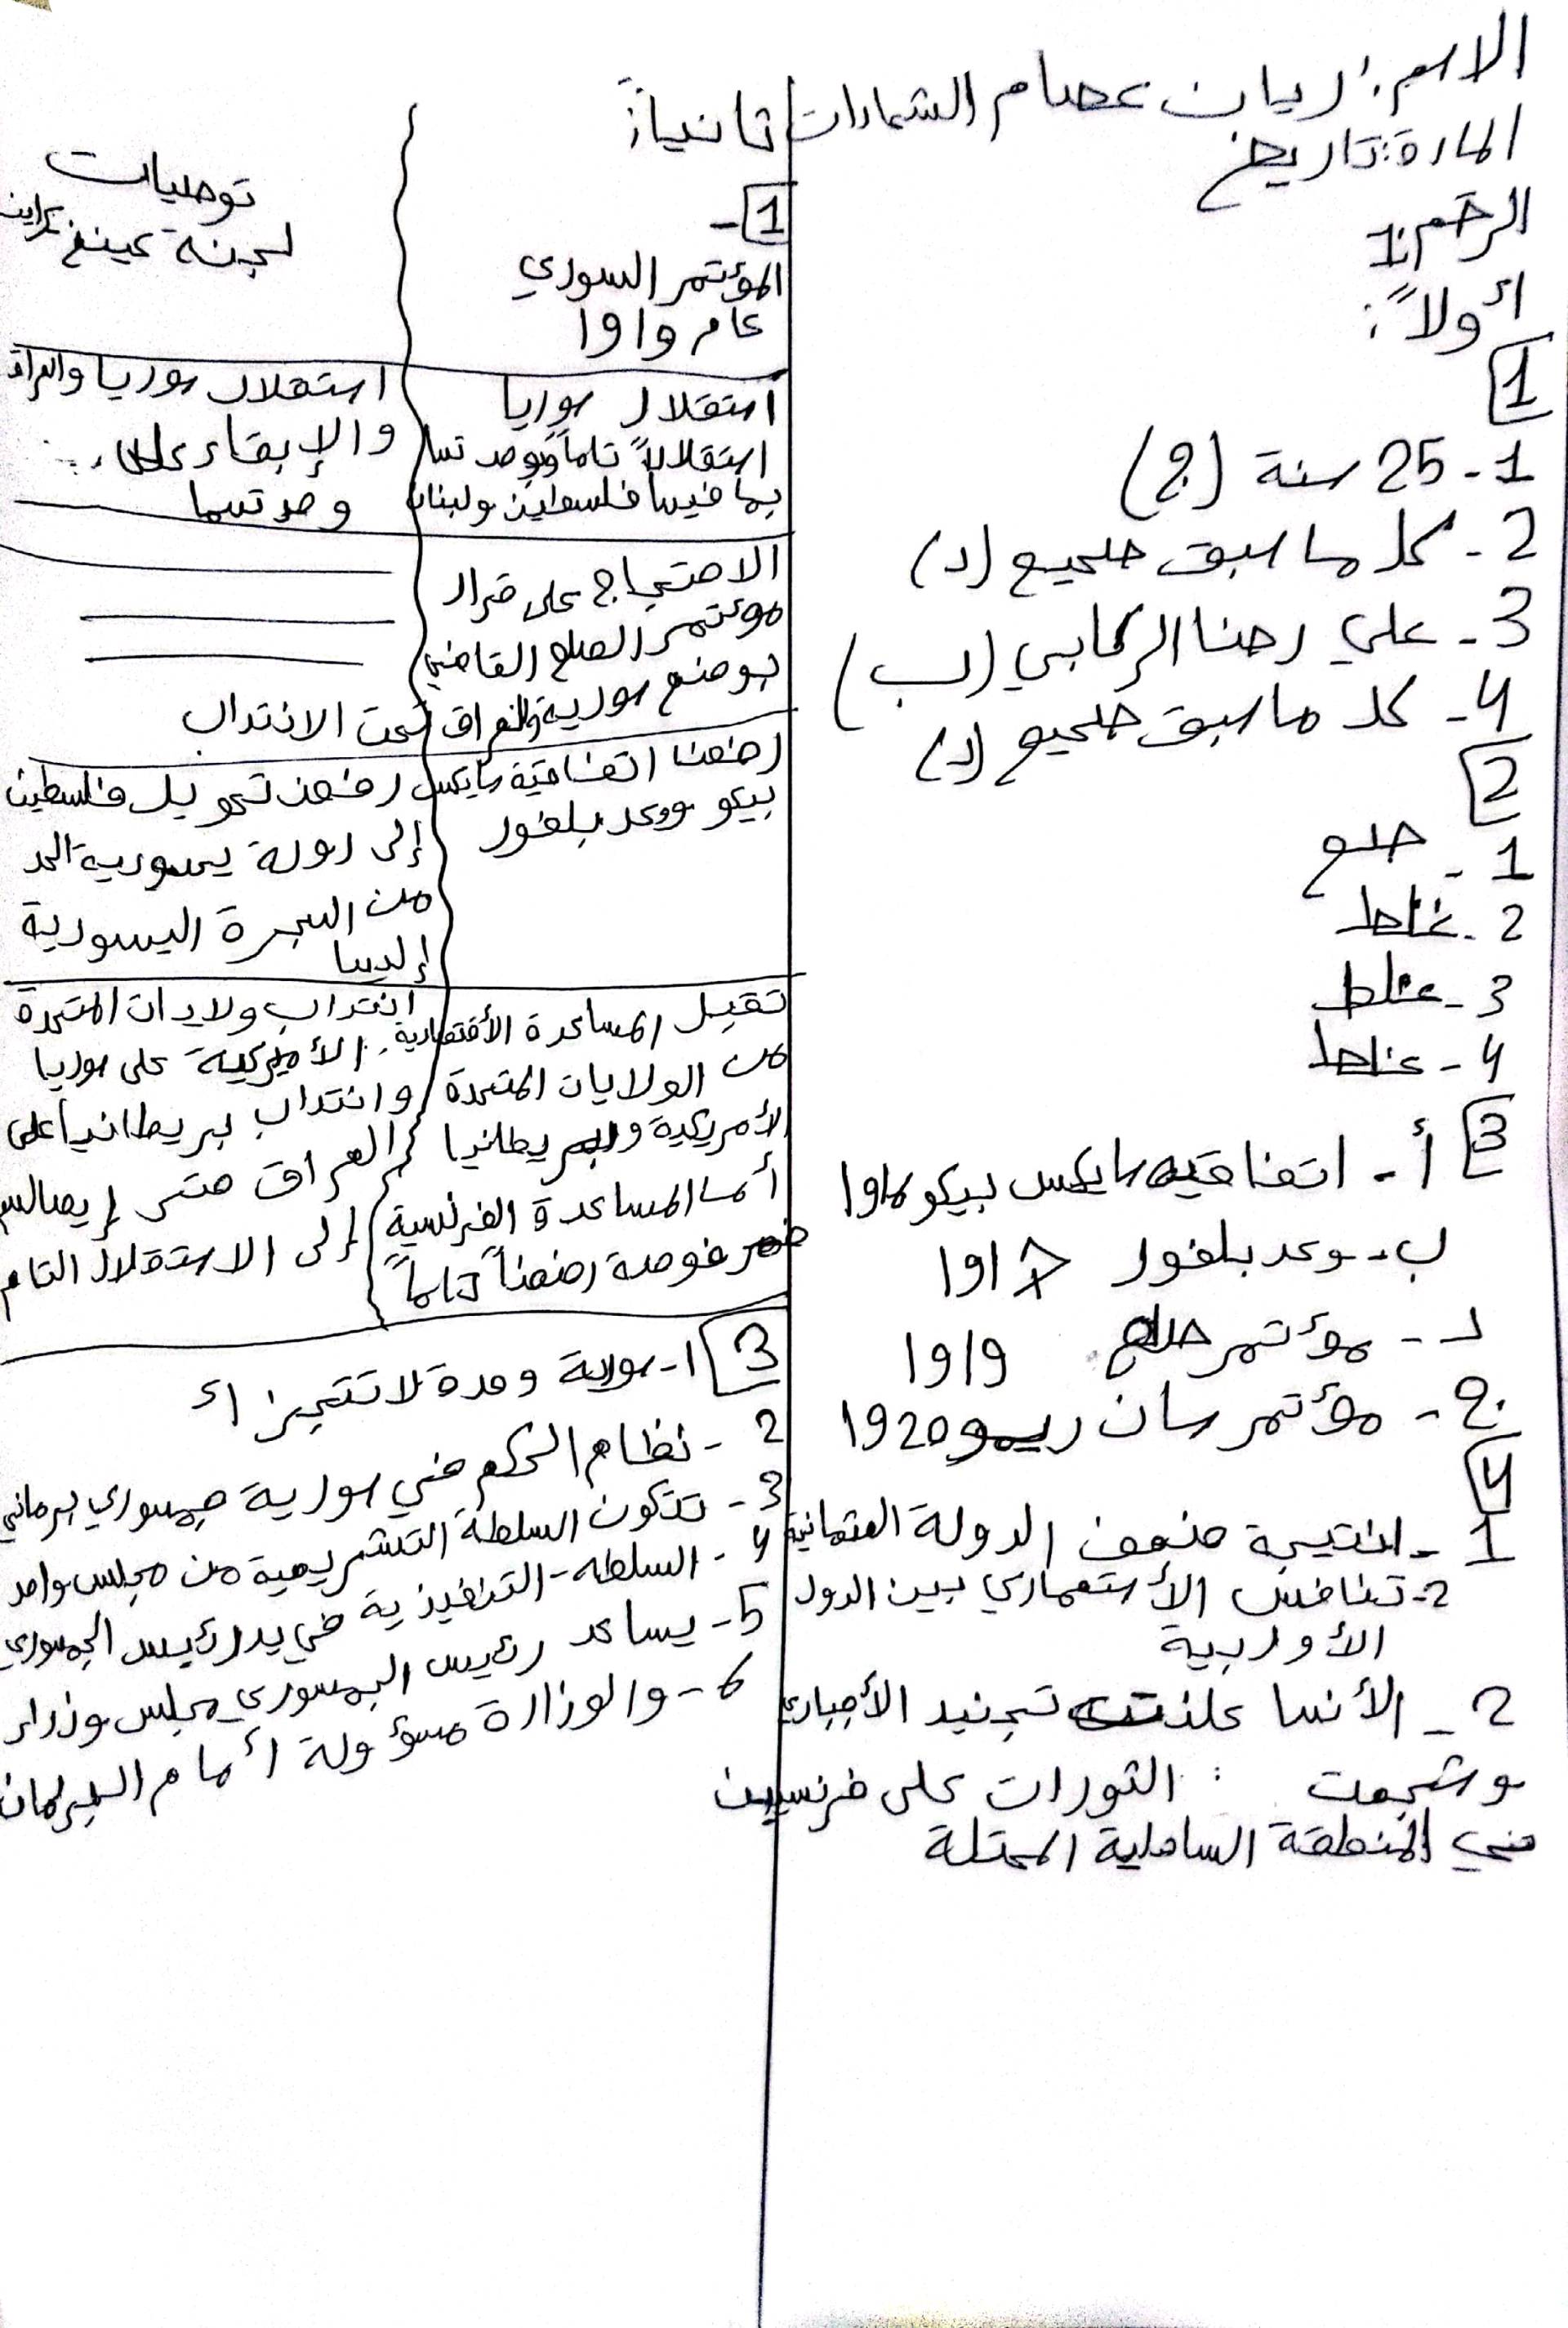 الاسم: ريان عصام الشمارات
المادة: تاريخ
الرقم: 1
أولاً:
1
1- 25 سنة (ج)
2- كل ما سبق صحيح (د)
3- علي رضا الركابي (ب)
4- كل ما سبق صحيح (د)
2
1- صح
2- غلط
3- غلط
4- غلط
3
أ- اتفاقيه سايكس بيكو 1916
ب- وعد بلفور 1917
د- مؤتمر صلح 1919
ج- مؤتمر سان ريمو 1920
4
1- نتيجة ضعف الدولة العثمانية
2- تنافس الأستعماري بين الدول
الأوربية
2- لأنها تجنيد الأجباري
وشجعت الثورات على فرنسيين
في المنطقة الساحلية المحتلة
ثانياً:
1-
المؤتمر السوري
عام 1919
توصيات
لجنة كينغ كراين
استقلال سوريا
استقلالاً تاماً ووحدتها
بما فيها فلسطين ولبنان
استقلال سوريا والعراق
والإبقاء على
وحدتهما
الاحتجاج على قرار
مؤتمر الصلح القاضي
بوضع سورية والعراق تحت الانتداب
رفضنا اتفاقية سايكس
بيكو ووعد بلفور
رفض تحويل فلسطين
إلى دولة يهودية الحد
من الهجرة اليهودية
إليها
تقبل المساعدة الأقتصادية
من الولايات المتحدة
الأمريكية وبريطانيا
أما المساعدة الفرنسية
فمرفوضة رفضاً تاماً
انتداب ولايات المتحدة
الأميركية على سوريا
وانتداب بريطانيا على
العراق حتى إيصالهم
إلى الاستقلال التام
3
1- سورية وحدة لا تتجزأ
2- نظام الحكم في سورية جمهوري برماني
3- تتكون السلطة التشريعية من مجلس واحد
4- السلطه التنفيذية في يد رئيس الجمهوري
5- يساعد رئيس الجمهوري مجلس وزراء
6- والوزارة مسؤولة أمام البرلمان